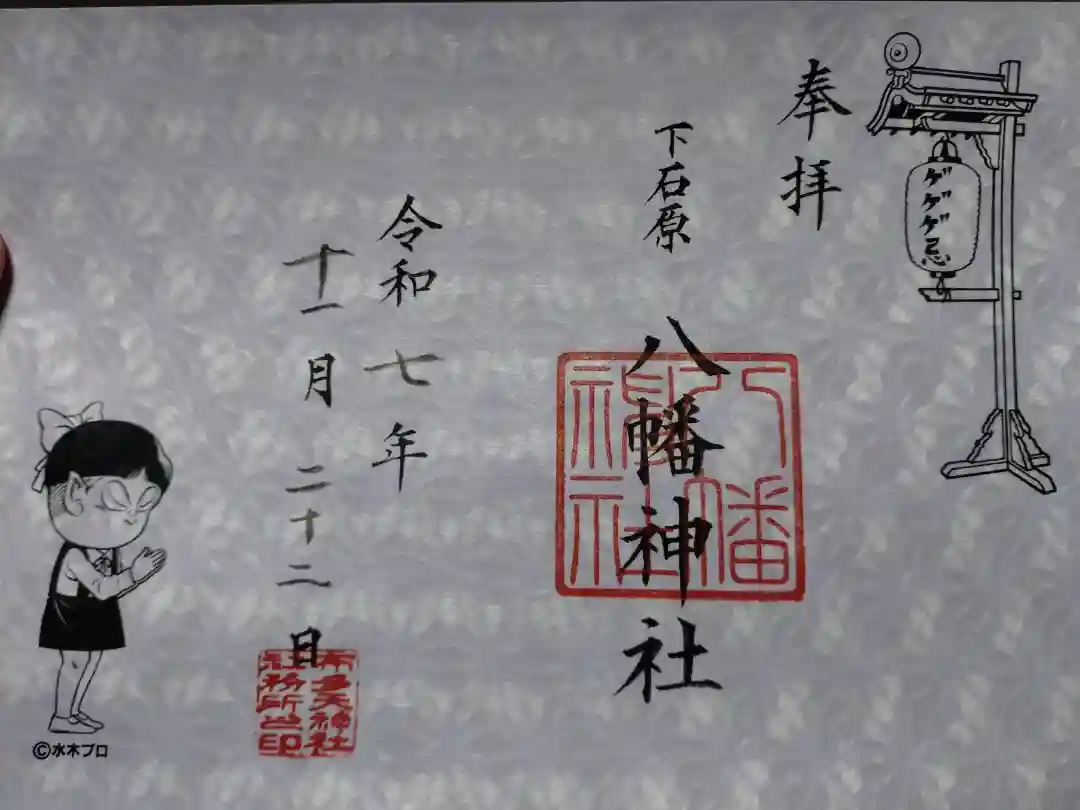 ゲゲゲ忌
奉拝
下石原
八幡神社
八幡
神社
令和七年
十一月二十二日
布多天神社
社務所之印
©水木プロ